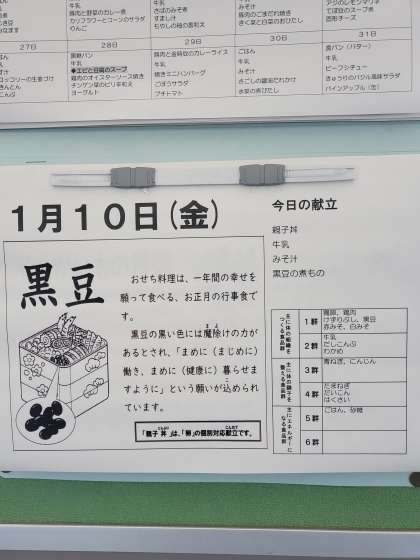 豚肉と野菜のカレー煮
カリフラワーとコーンのサラダ
りんご
牛乳
さばのみそ煮
すまし汁
もやしの柚の香和え
みそ汁
豚肉のごまだれ焼き
きく菜と白菜のおひたし
アジのレモンマリネ
てぼ豆のスープ煮
固形チーズ
27日
28日
29日
30日
31日
黒糖パン
牛乳
◆エビと白菜のスープ
鶏肉のオイスターソース焼き
チンゲン菜のピリ辛和え
ヨーグルト
豚肉と金時豆のカレーライス
牛乳
焼きミニハンバーグ
ごぼうサラダ
プチトマト
ごはん
牛乳
みそ汁
さごしの醤油だれかけ
水菜の煮びたし
食パン（バター）
牛乳
ビーフシチュー
きゅうりのバジル風味サラダ
パインアップル（缶）
1月10日(金)
今日の献立
親子丼
牛乳
みそ汁
黒豆の煮もの
黒豆
おせち料理は、一年間の幸せを
願って食べる、お正月の行事食で
す。
黒豆の黒い色には魔除けの力が
あるとされ、「まめに（まじめに）
働き、まめに（健康に）暮らせま
すように」という願いが込められ
ています。
「親子丼」は、「卵」の個別対応献立です。
主に体の組織を
つくる食品群
1群
鶏卵、鶏肉
けずりぶし、黒豆
赤みそ、白みそ
2群
牛乳
だしこんぶ
わかめ
主に体の調子を
整える食品群
3群
青ねぎ、にんじん
4群
たまねぎ
だいこん
はくさい
主にエネルギーに
なる食品群
5群
ごはん、砂糖
6群